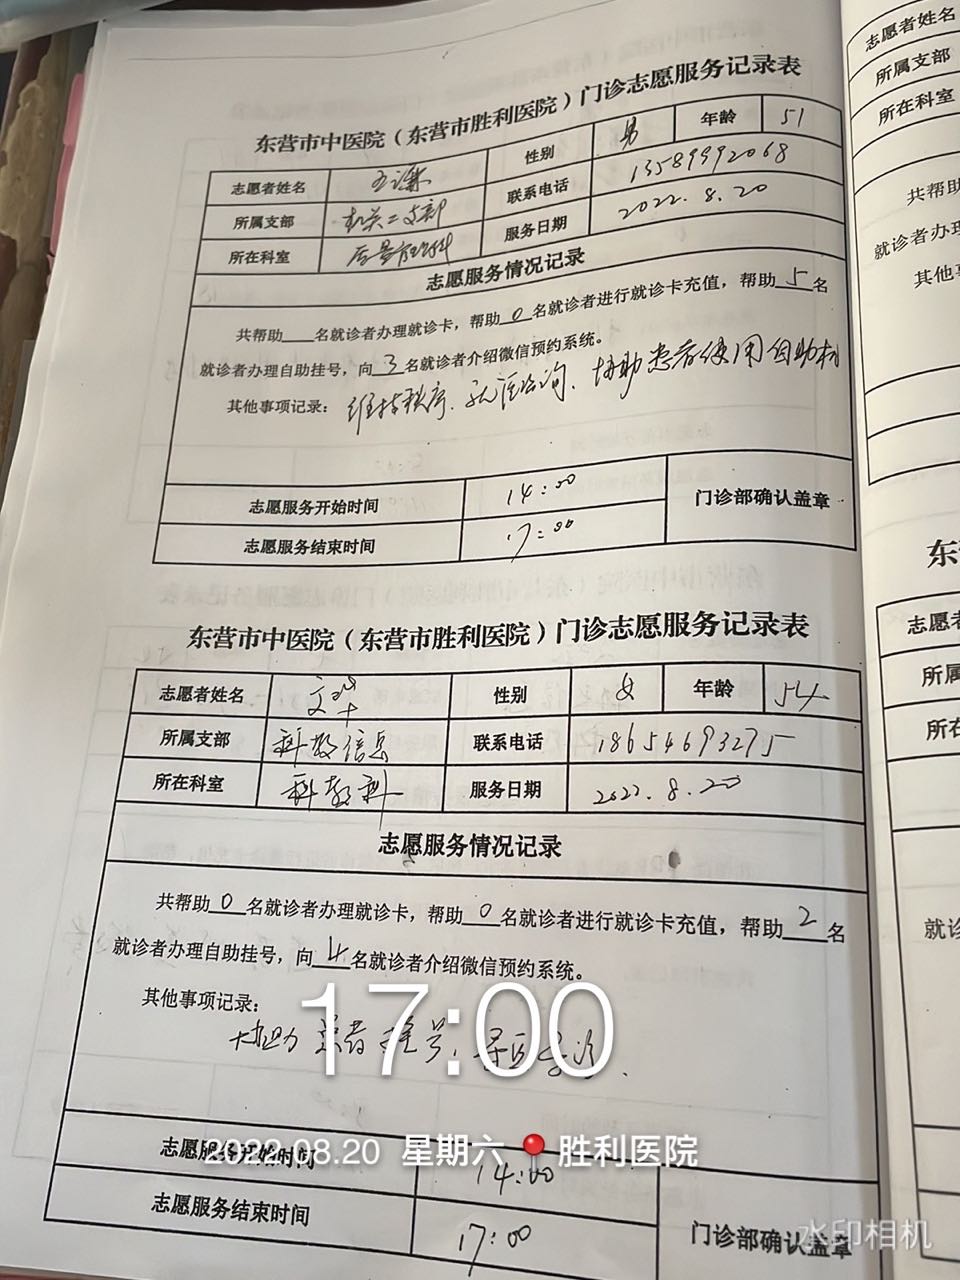 东营市中医院（东营市胜利医院）门诊志愿服务记录表
志愿者姓名 性别 男 年龄 51
所属支部 机关二支部 联系电话 13589992068
所在科室 质量管理科 服务日期 2022.8.20
志愿服务情况记录
共帮助 名就诊者办理就诊卡，帮助0名就诊者进行就诊卡充值，帮助5名
就诊者办理自助挂号，向3名就诊者介绍微信预约系统。
其他事项记录：维持秩序、就医咨询、协助患者使用自助机
志愿服务开始时间 14:00 门诊部确认盖章
志愿服务结束时间 17:00
东营市中医院（东营市胜利医院）门诊志愿服务记录表
志愿者姓名 文华 性别 女 年龄 54
所属支部 科教信息 联系电话 18654693275
所在科室 科教科 服务日期 2022.8.20
志愿服务情况记录
共帮助0名就诊者办理就诊卡，帮助0名就诊者进行就诊卡充值，帮助2名
就诊者办理自助挂号，向4名就诊者介绍微信预约系统。
其他事项记录：
协助患者挂号、导医导诊.
志愿服务开始时间 14:00
志愿服务结束时间 17:00 门诊部确认盖章
17:00
2022.08.20 星期六 胜利医院
水印相机
志愿者姓名
所属支部
所在科室
共帮助
就诊者办理
其他事
东
志愿者
所属
所在
就诊